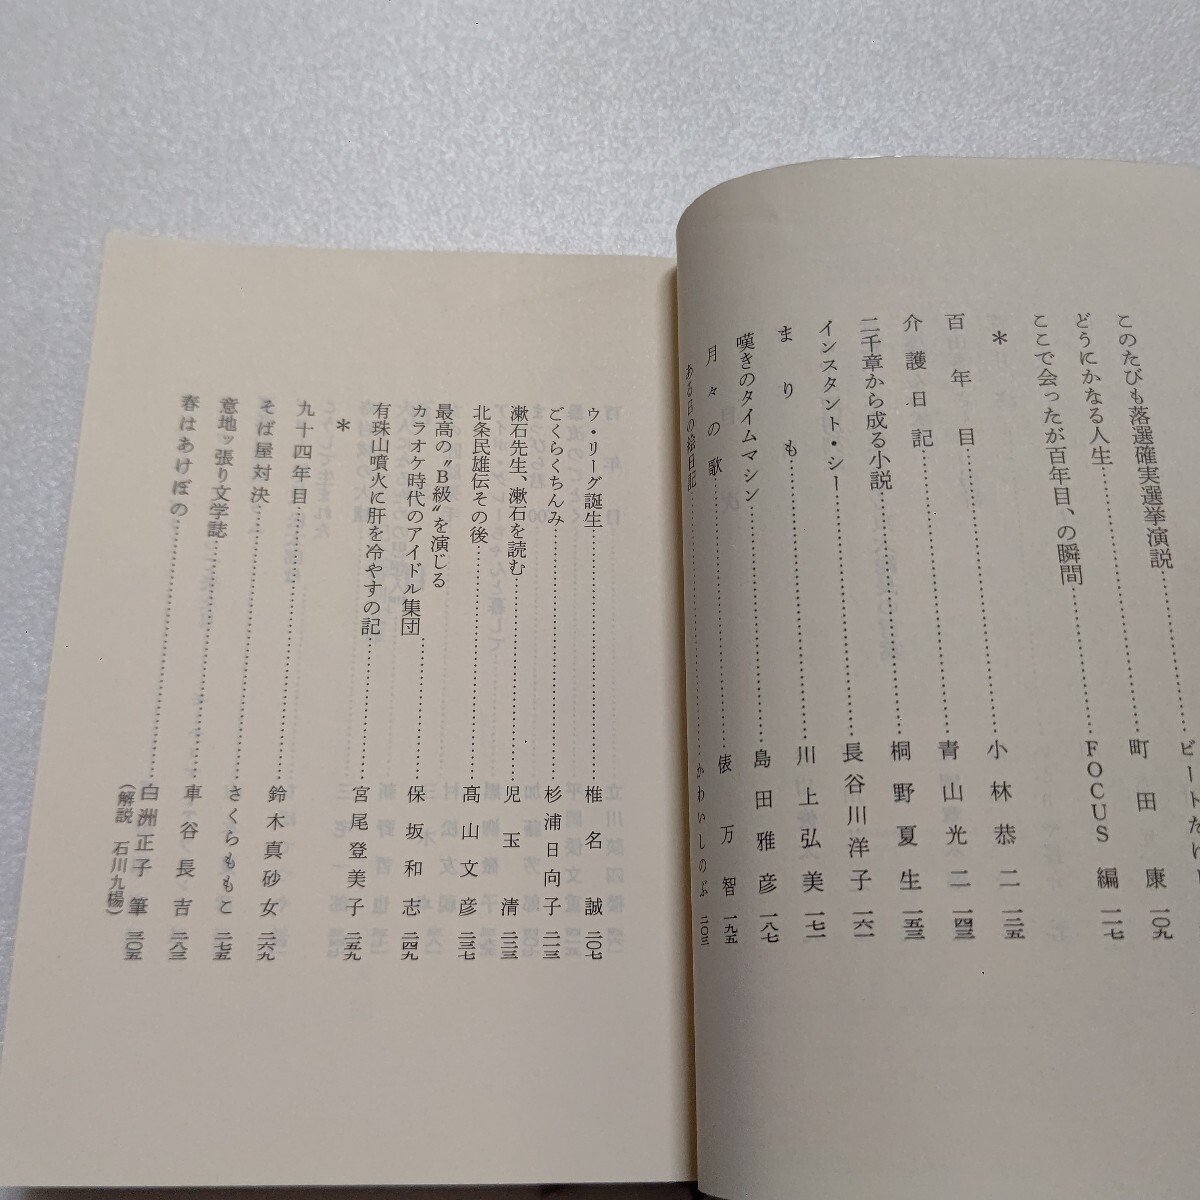 ビートたけし
このたびも落選確実選挙演説……町田康 一〇九
どうにかなる人生……FOCUS編 一一七
ここで会ったが百年目、の瞬間
＊
百年目……小林恭二 一二五
介護日記……青山光二 一四三
二千章から成る小説……桐野夏生 一五三
インスタント・シー……長谷川洋子 一六一
まりも……川上弘美 一七一
嘆きのタイムマシン……島田雅彦 一八七
月々の歌……俵万智 一九五
ある日の絵日記……かわいしのぶ 二〇三
ウ・リーグ誕生……椎名誠 二〇七
ごくらくちんみ……杉浦日向子 二一三
漱石先生、漱石を読む……児玉清 二二三
北条民雄伝その後……髙山文彦 二三七
最高の〝B級〟を演じる
カラオケ時代のアイドル集団……保坂和志 二四九
有珠山噴火に肝を冷やすの記……宮尾登美子 二五九
＊
九十四年目……鈴木真砂女 二六九
そば屋対決……さくらももこ 二七五
意地ッ張り文学誌……車谷長吉 二八三
春はあけぼの……白洲正子筆 三〇五
（解説 石川九楊）